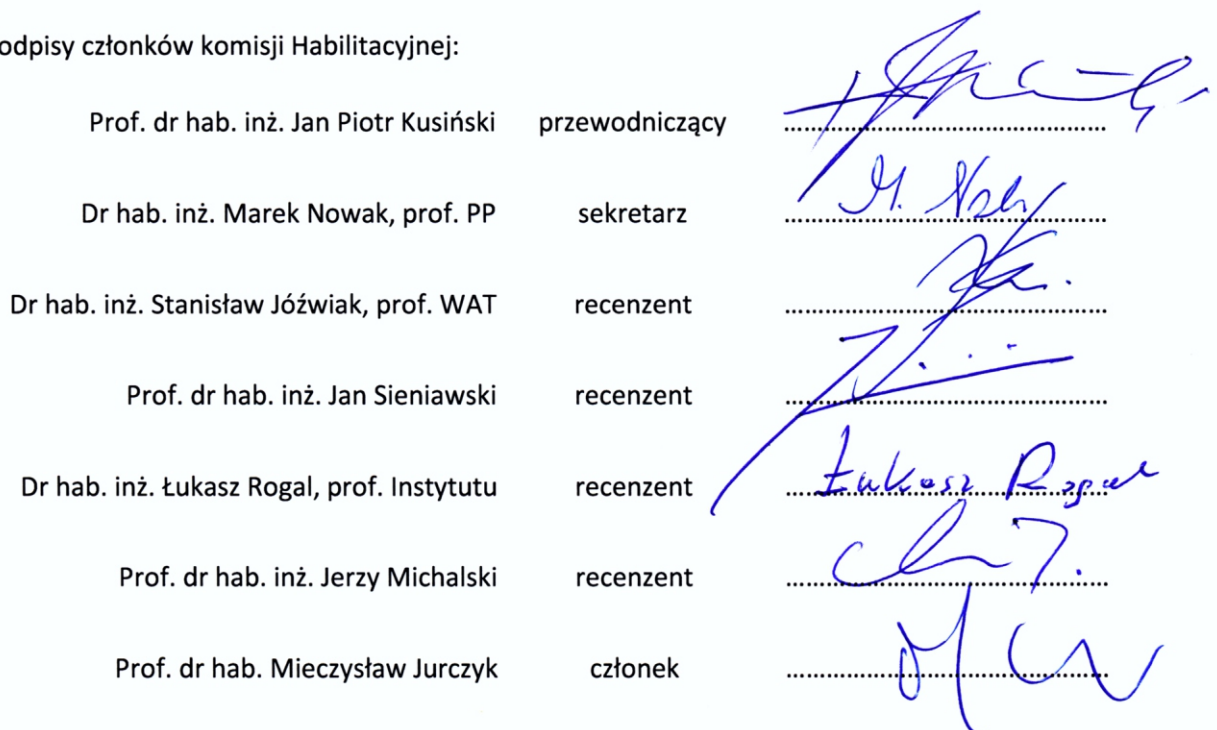 odpisy członków komisji Habilitacyjnej:
Prof. dr hab. inż. Jan Piotr Kusiński przewodniczący ........................................
Dr hab. inż. Marek Nowak, prof. PP sekretarz ........................................ M.
Dr hab. inż. Stanisław Jóźwiak, prof. WAT recenzent ........................................
Prof. dr hab. inż. Jan Sieniawski recenzent ........................................
Dr hab. inż. Łukasz Rogal, prof. Instytutu recenzent ........................................ Łukasz Rogal
Prof. dr hab. inż. Jerzy Michalski recenzent ........................................
Prof. dr hab. Mieczysław Jurczyk członek ........................................